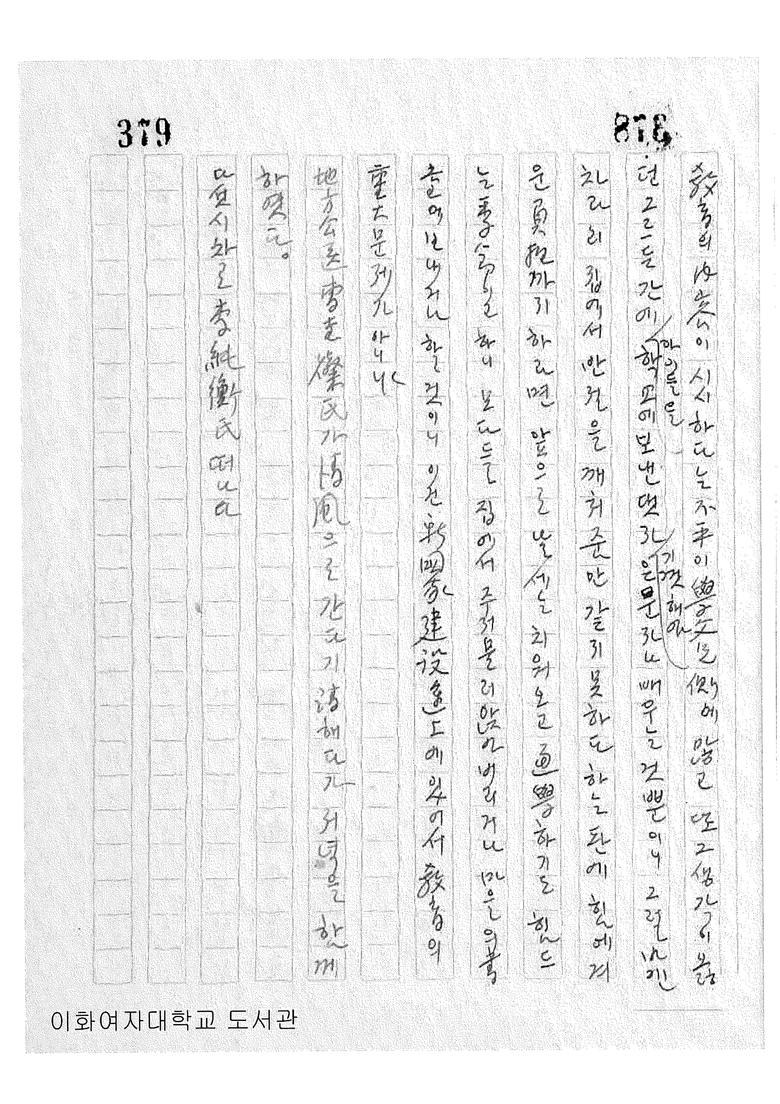 379
敎育의 內容이 시시하다는 不平이 學父兄 側에 많고 또 그 생각이 옳
던 그르든 간에 아이들을 학교에 보낸댓자 기껏해야 은문자나 배우는 것 뿐이니 그럴 바엔
차라리 집에서 만점을 깨쳐 준만 같지 못하다 하는 판에 힘에 겨
운 負担까지 하라면 앞으로 날세는 치워오고 通學하기도 힘드
는 季節이고 하니 모다들 집에서 주저물러앉아 버리거나 마을의
줄여 보내거나 할 것이니 이건 新國家 建設途上에 있어서 敎育의
重大문제가 아니냐
地方公醫 李圭燦氏가 淸風으로 간다기 請해다가 저녁을 함께
하였다。
다섯시차로 李純衡氏 떠나다
이화여자대학교 도서관